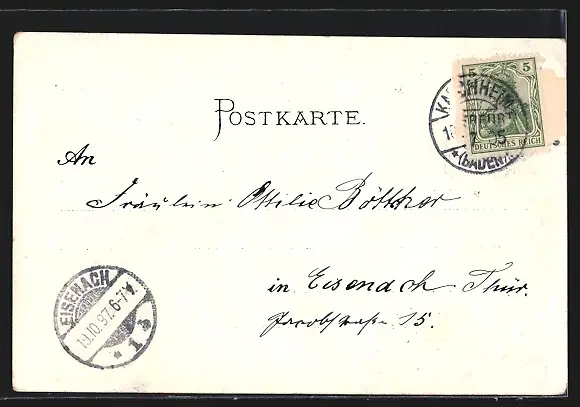 POSTKARTE.
5 5
DEUTSCHES REICH
(BADEN)
An
Fräulein Ottilie Böttcher
in Eisenach Thür.
Jacobstraße 15.
EISENACH
19.10.97.6-7V.
* 1 3